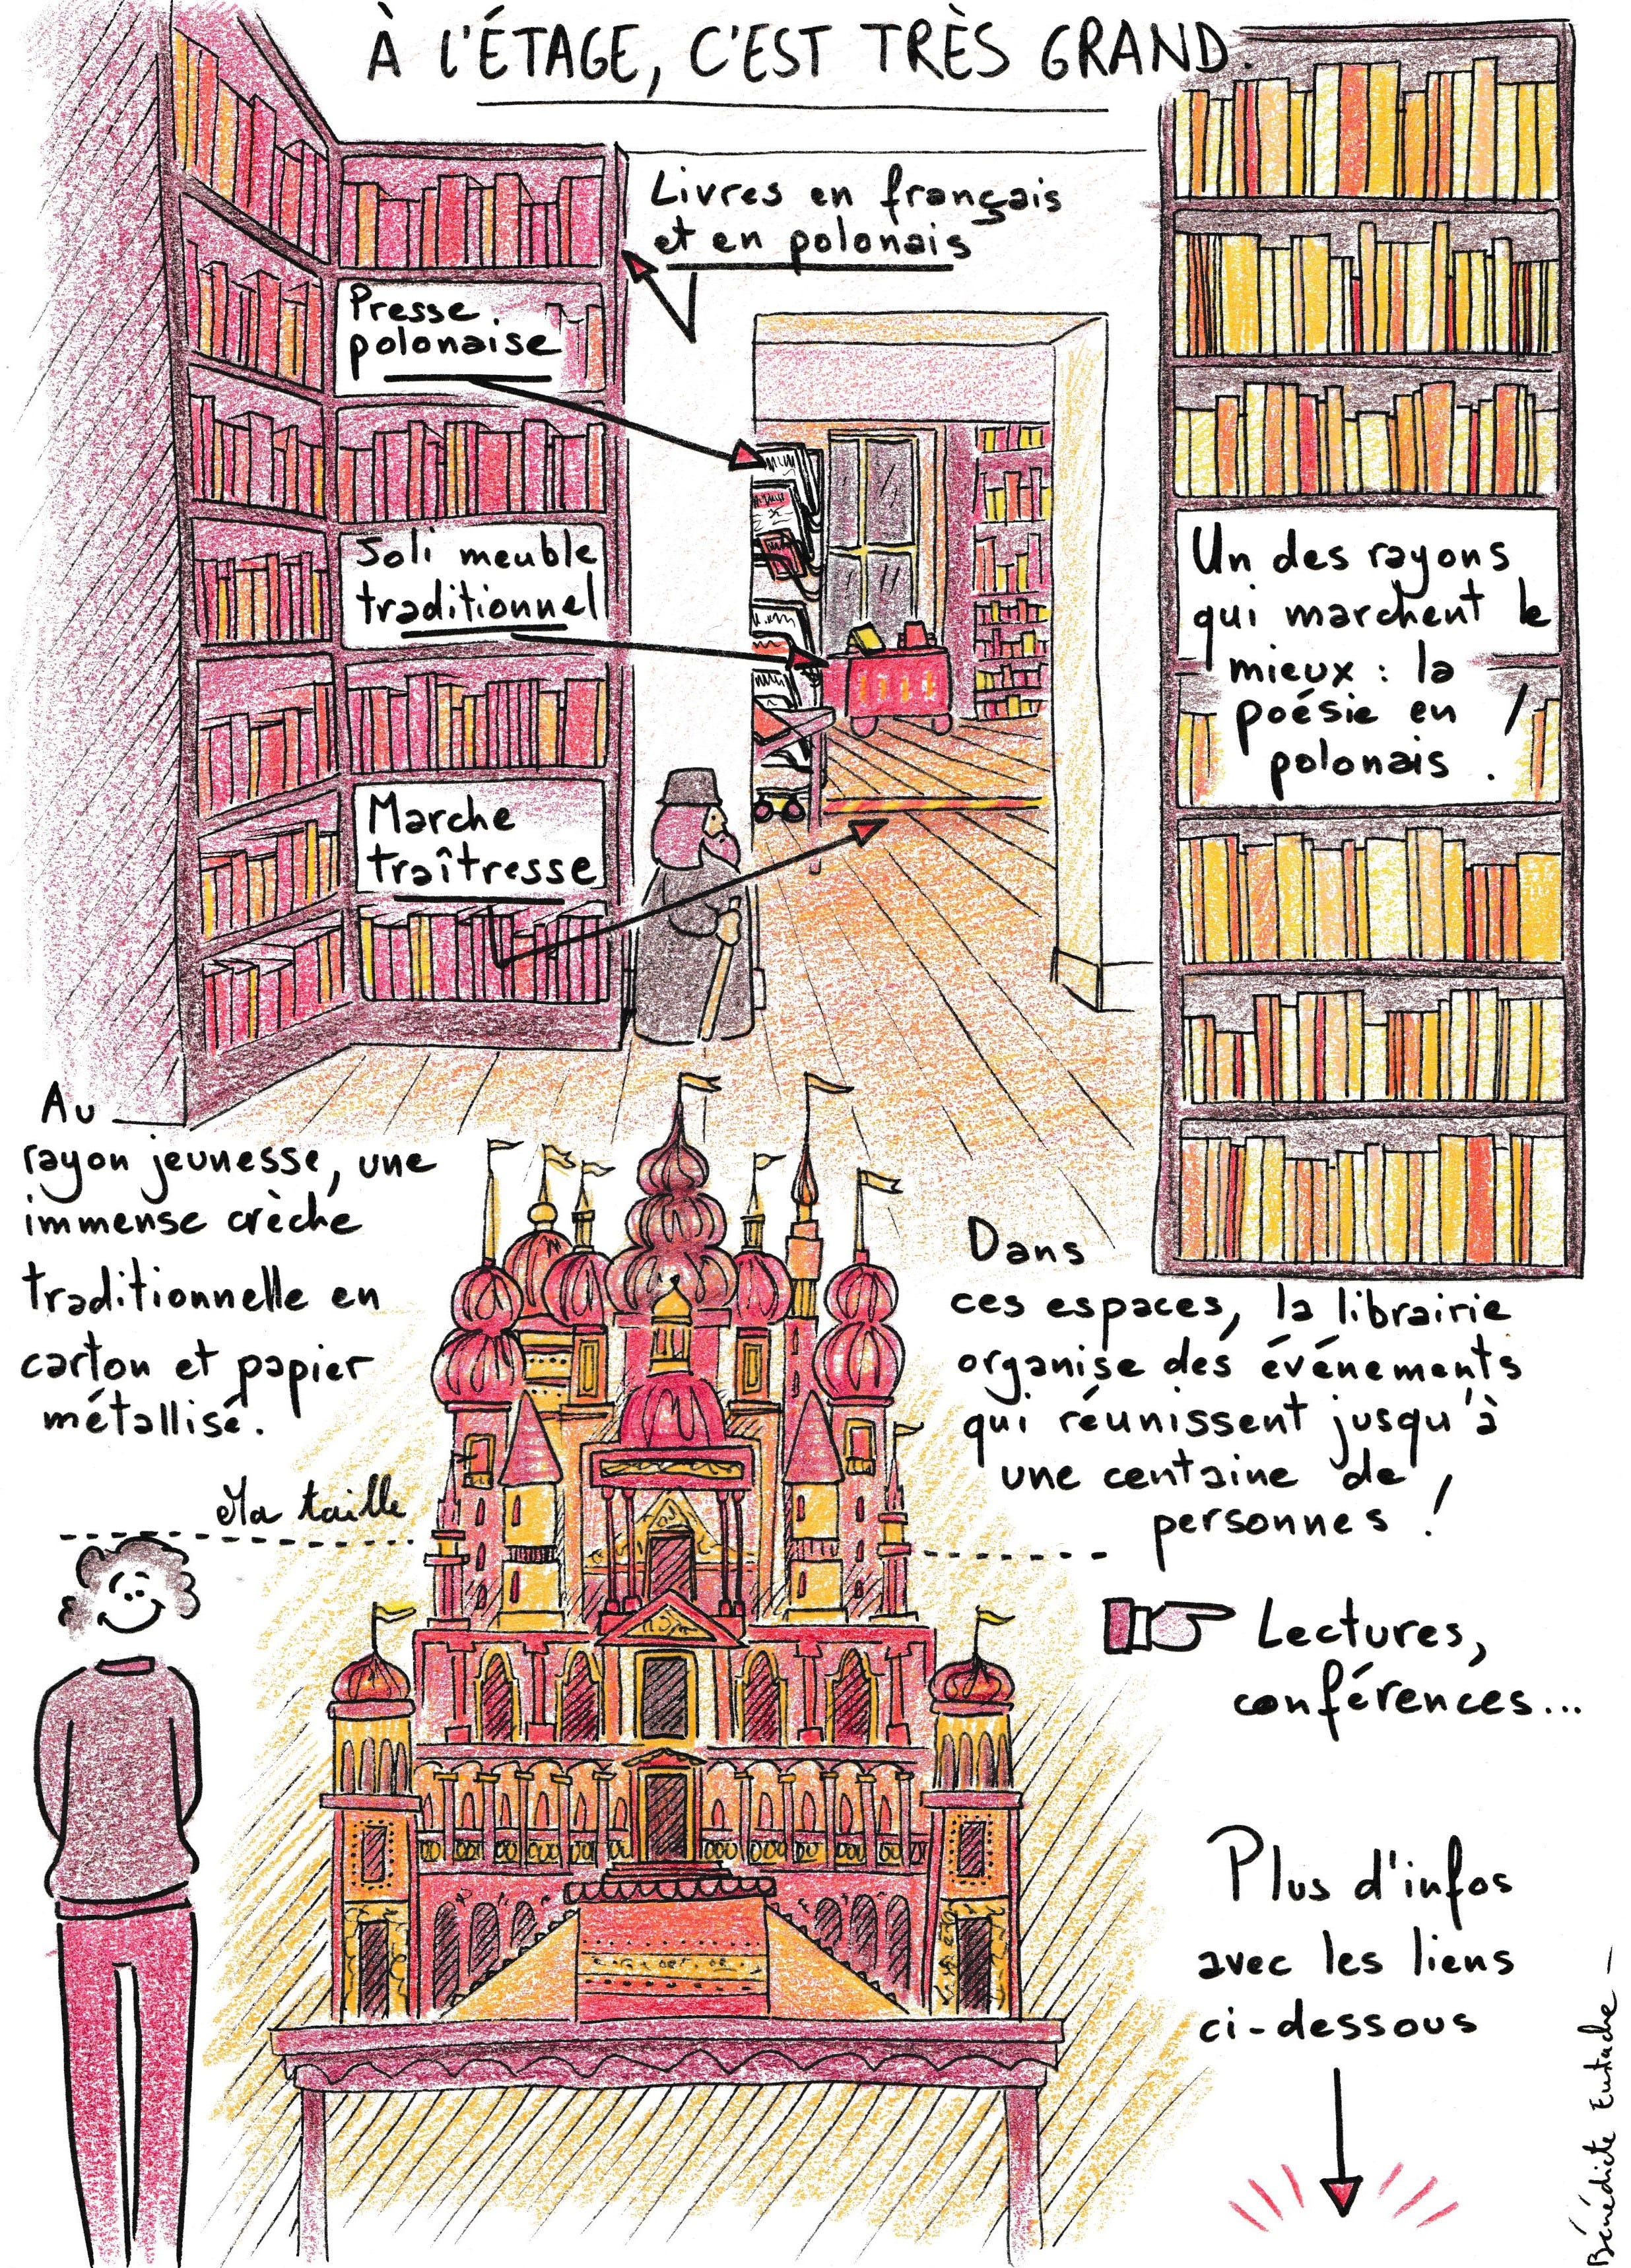 À L'ÉTAGE, C'EST TRÈS GRAND.
Livres en français
et en polonais
Presse
polonaise
Joli meuble
traditionnel
Marche
traîtresse
Un des rayons
qui marchent le
mieux : la
poésie en
polonais !
Au
rayon jeunesse, une
immense crèche
traditionnelle en
carton et papier
métallisé.
Ma taille
Dans
ces espaces, la librairie
organise des événements
qui réunissent jusqu'à
une centaine de
personnes !
Lectures,
conférences...
Plus d'infos
avec les liens
ci-dessous
Bénédicte Eustache